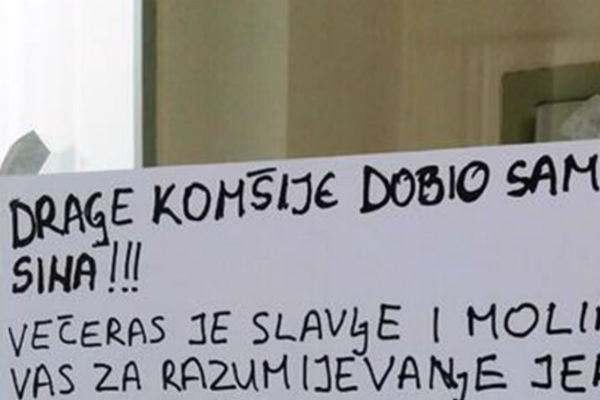 DRAGE KOMŠIJE DOBIO SAM
SINA!!!
VEČERAS JE SLAVLJE I
VAS ZA RAZUMIJEVANJE